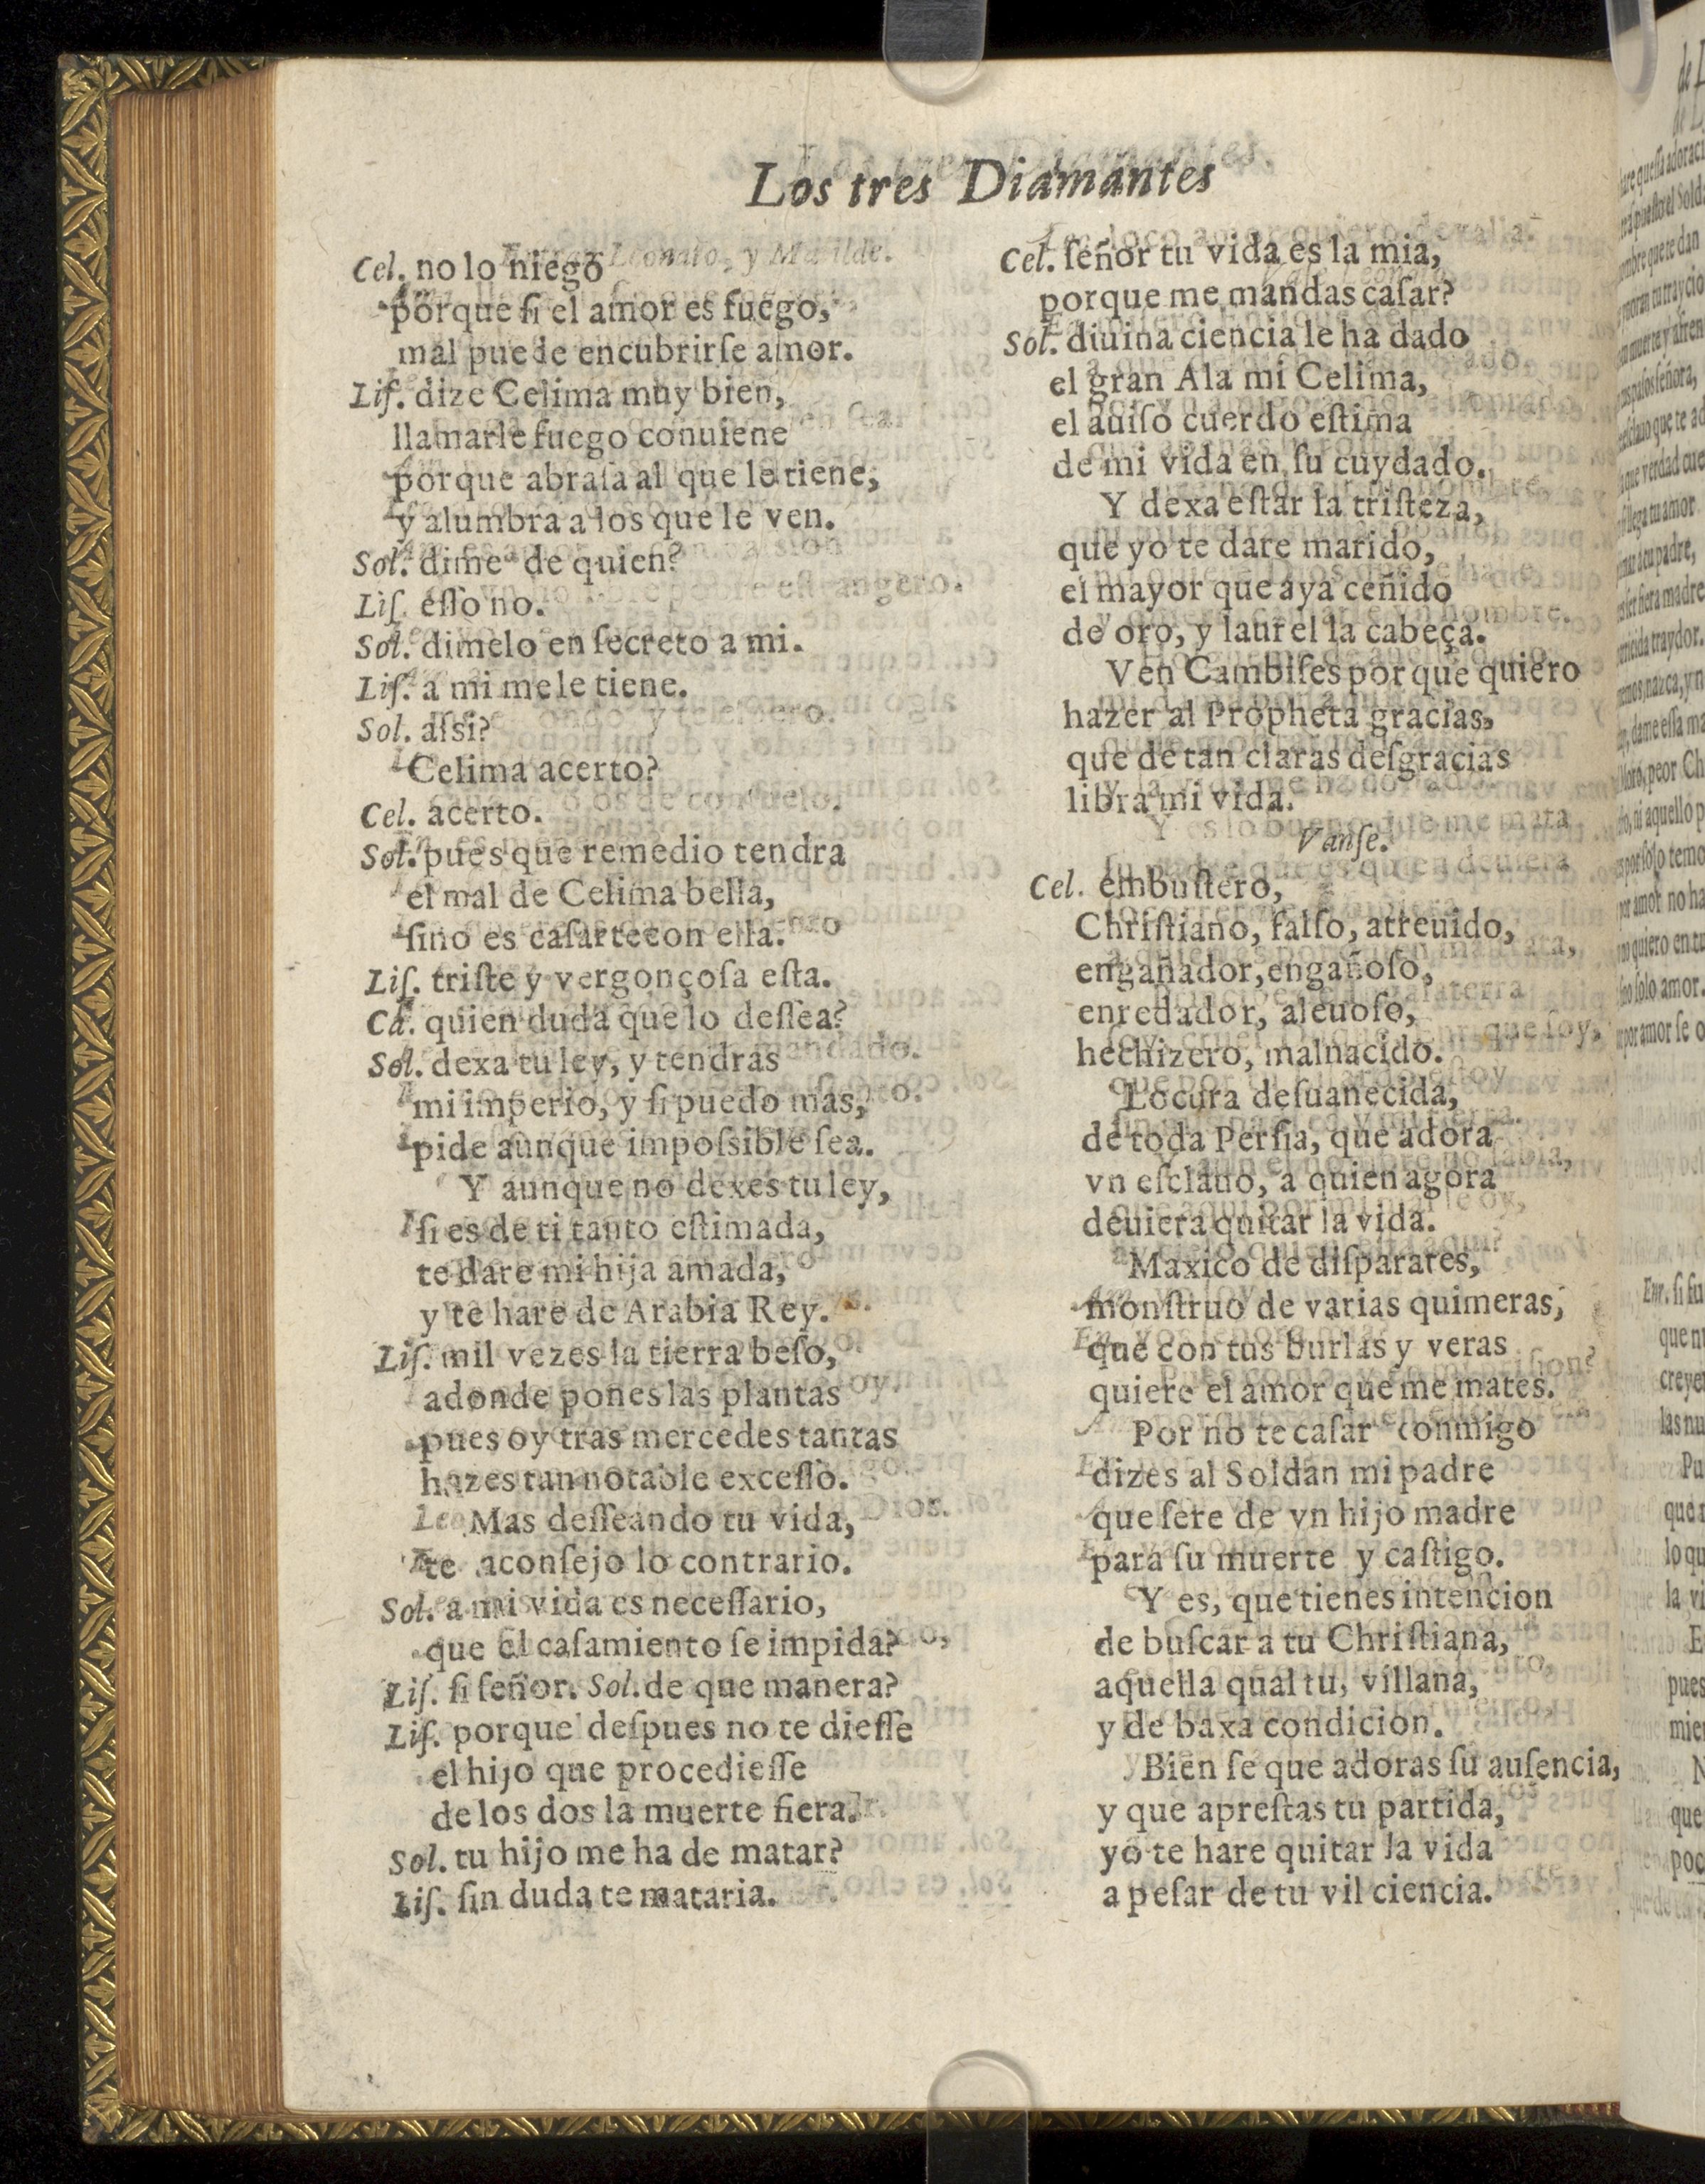 Los tres Diamantes
Cel. no lo niego
porque ſi el amor es fuego,
mal puede encubrirſe amor.
Liſ. dize Celima muy bien,
llamarle fuego conuiene
porque abraſa al que le tiene,
y alumbra a los que le ven.
Sol. dime de quien?
Liſ. eſſo no.
Sol. dimelo en ſecreto a mi.
Liſ. a mi me le tiene.
Sol. aſsi?
Celima acerto?
Cel. acerto.
Sol. pues que remedio tendra
el mal de Celima bella,
ſino es caſarte con ella.
Liſ. triſte y vergonçoſa eſta.
Ca. quien duda que lo deſſea?
Sol. dexa tu ley, y tendras
mi imperio, y ſi puedo mas,
pide aunque impoſsible ſea.
Y aunque no dexes tu ley,
ſi es de ti tanto eſtimada,
te dare mi hija amada,
y te hare de Arabia Rey.
Liſ. mil vezes la tierra beſo,
adonde pones las plantas
pues oy tras mercedes tantas
hazes tan notable exceſſo.
Mas deſſeando tu vida,
te aconſejo lo contrario.
Sol. a mi vida es neceſſario,
que el caſamiento ſe impida?
Liſ. ſi ſeñor. Sol. de que manera?
Liſ. porque deſpues no te dieſſe
el hijo que procedieſſe
de los dos la muerte fiera.
Sol. tu hijo me ha de matar?
Liſ. ſin duda te mataria.
Cel. ſeñor tu vida es la mia,
porque me mandas caſar?
Sol. diuina ciencia le ha dado
el gran Ala mi Celima,
el auiſo cuerdo eſtima
de mi vida en ſu cuydado.
Y dexa eſtar la triſteza,
que yo te dare marido,
el mayor que aya ceñido
de oro, y laurel la cabeça.
Ven Cambiſes porque quiero
hazer al Propheta gracias,
que de tan claras deſgracias
libra mi vida.
Vanſe.
Cel. embuſtero,
Chriſtiano, falſo, atreuido,
engañador, engañoſo,
enredador, aleuoſo,
hechizero, malnacido.
Locura deſuanecida,
de toda Perſia, que adora
vn eſclauo, a quien agora
deuiera quitar la vida.
Maxico de diſparates,
monſtruo de varias quimeras,
que con tus burlas y veras
quiere el amor que me mates.
Por no te caſar conmigo
dizes al Soldan mi padre
que ſere de vn hijo madre
para ſu muerte y caſtigo.
Y es, que tienes intencion
de buſcar a tu Chriſtiana,
aquella qual tu, villana,
y de baxa condicion.
Bien ſe que adoras ſu auſencia,
y que apreſtas tu partida,
yo te hare quitar la vida
a peſar de tu vil ciencia.